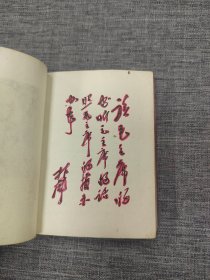 读毛主席的
书，听毛主席的话，
照毛主席的指示
办事。
林彪